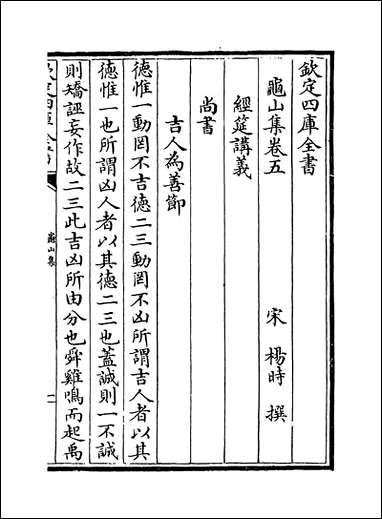 欽定四庫全書
龜山集卷五
宋 楊時 撰
經筵講義
尚書
吉人為善節
德惟一動罔不吉德二三動罔不凶所謂吉人者以其
德惟一也所謂凶人者以其德二三也蓋誠則一不誠
則矯誣妄作故二三此吉凶所由分也舜雞鳴而起禹
龜山集